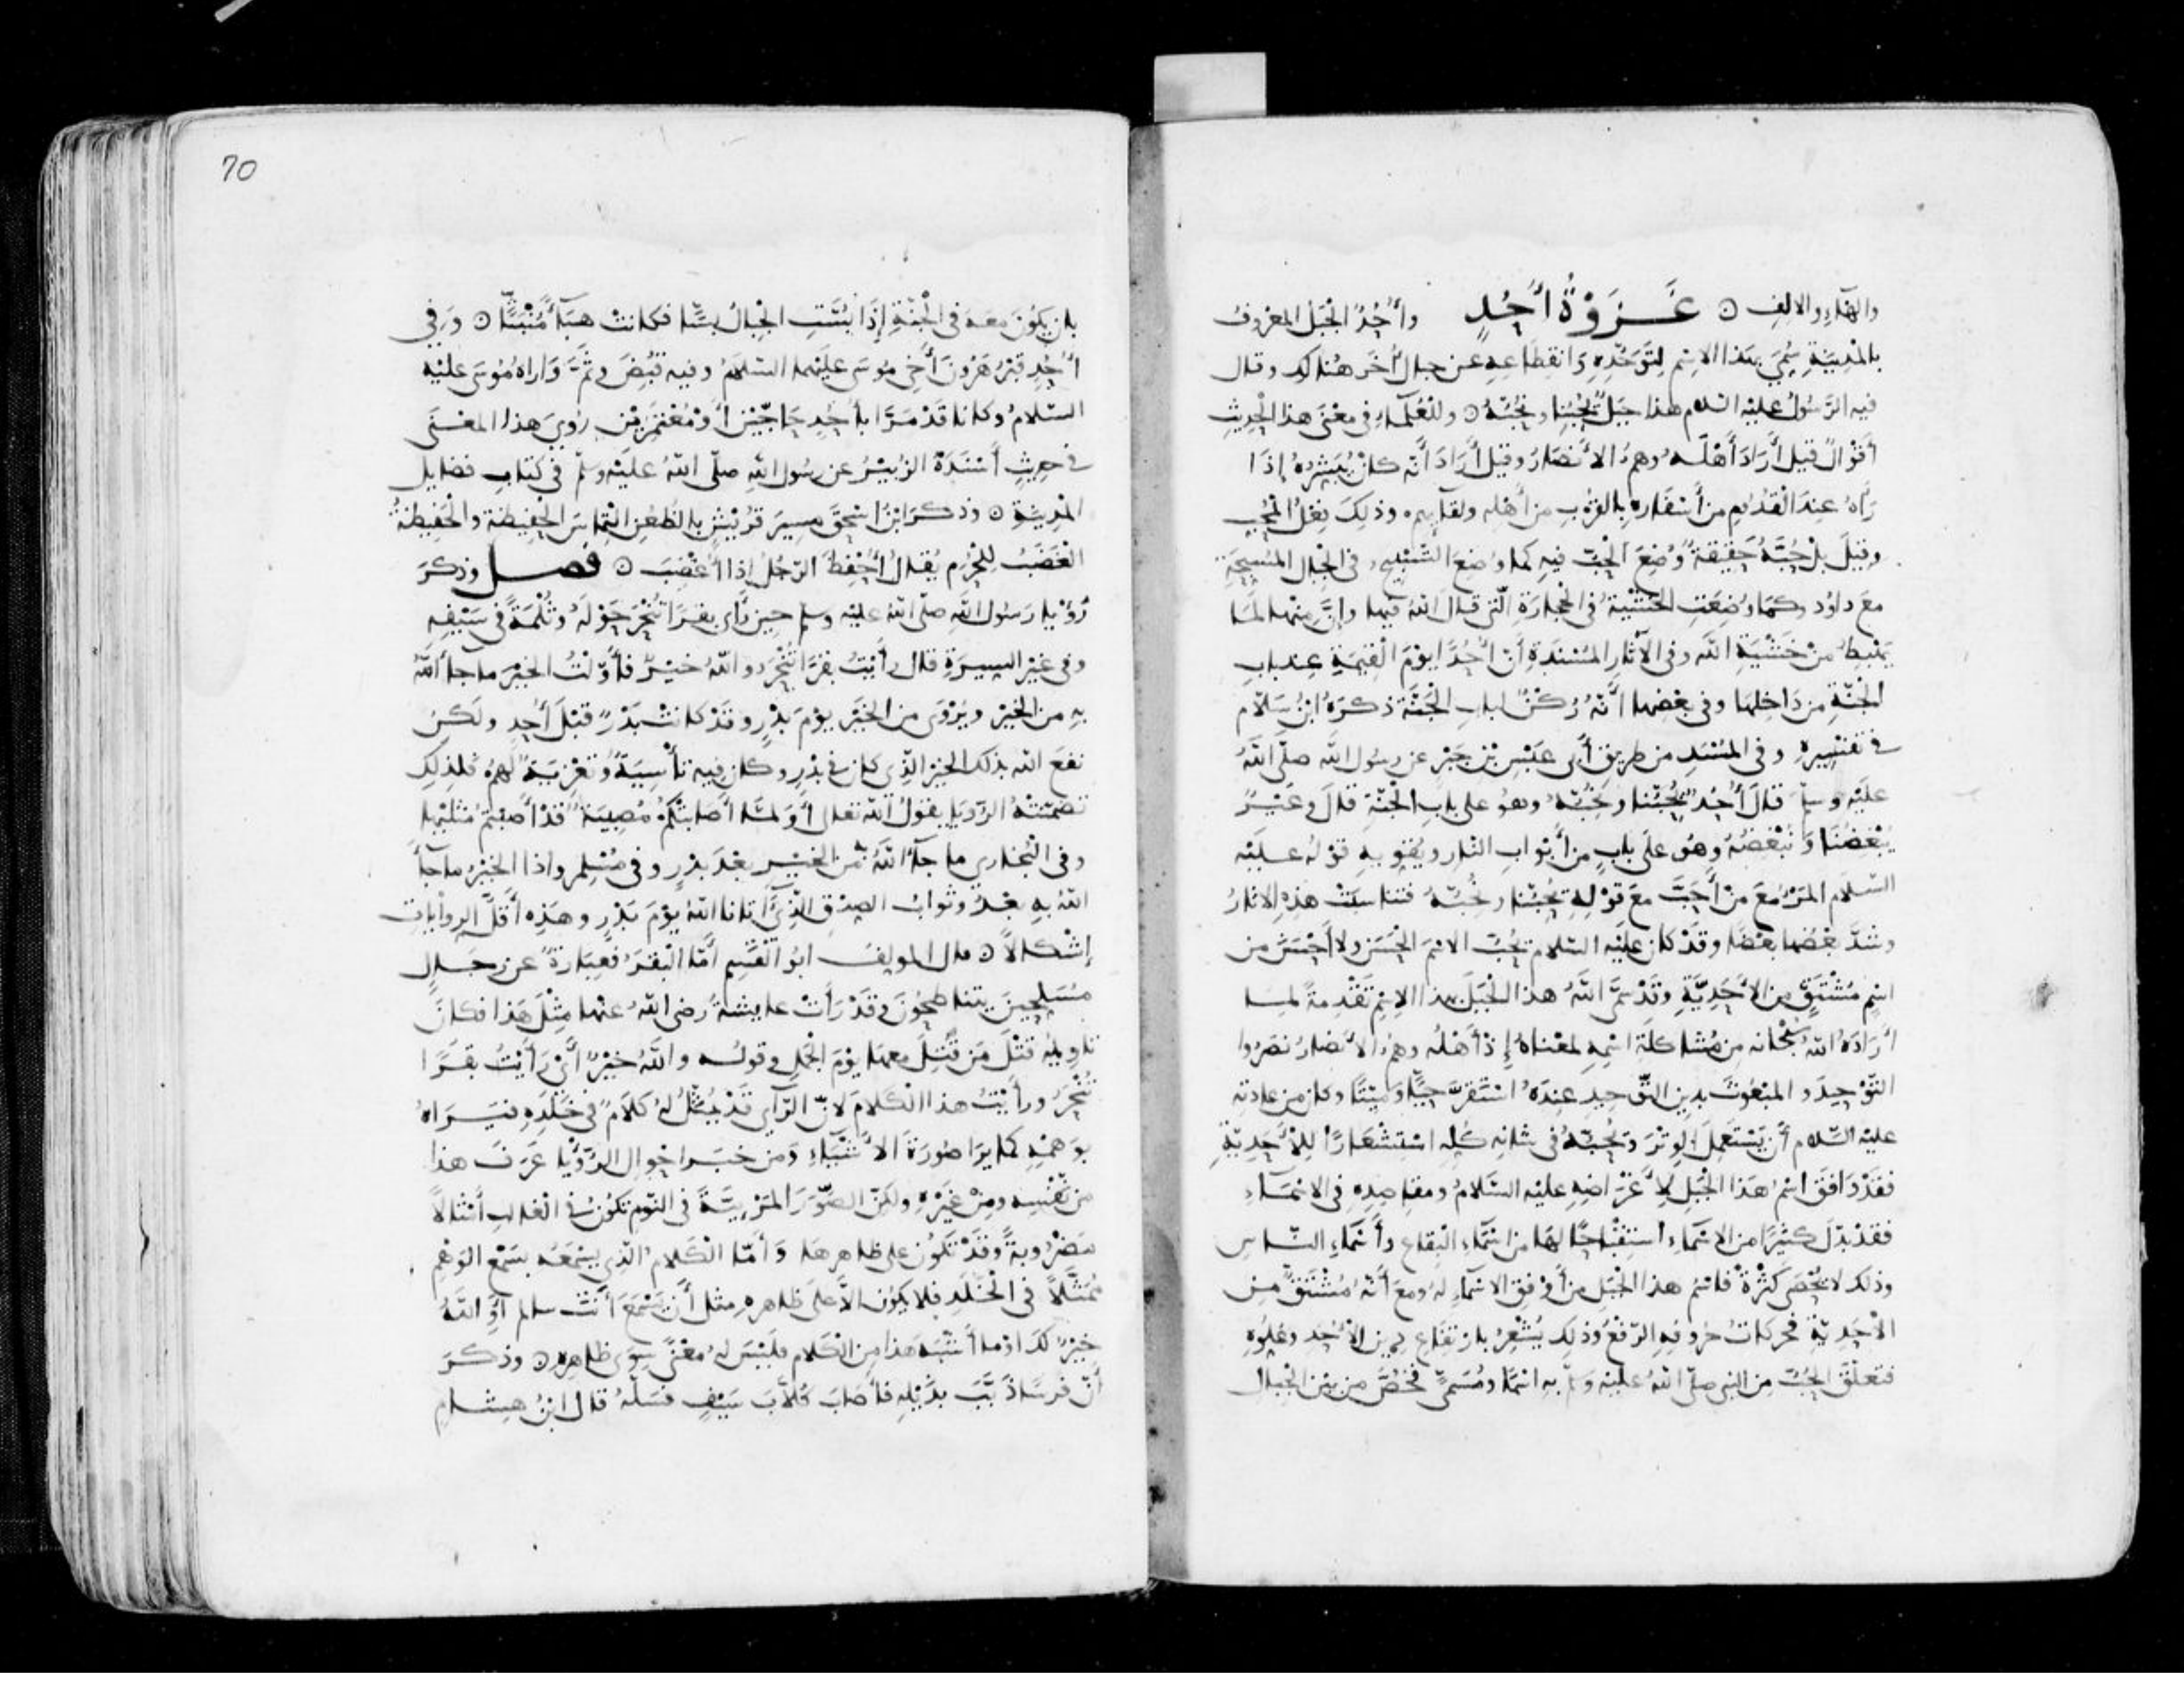 والهاء والالف ۞ غَزَوْةُ أُحُدٍ وأُحُدٌ الجَبَلُ المعْروفُ
بالمدِينَةِ سُمِّيَ بهَذا الاسْمِ لِتَوَحُّدِهِ وَانقِطَاعِهِ عن جبالٍ أُخَرَ هُنالِكَ وقال
فيه الرَّسُولُ عليْه السلام هذا جَبَلٌ يُحِبُّنا ونُحِبُّهُ ۞ وللْعُلَمآءِ في معْنَى هذا الحَدِيثِ
أقْوالٌ قيلَ أَرَادَ أَهْلَهُ وهم الأنْصَارُ وقيلَ أَرَادَ أَنَّه كان يُبَشِّرُهُ إذَا
رَآهُ عندَ الْقُدُومِ من أَسْفَارِهِ بالقُرْبِ من أَهْلِه ولقآيِهِم وذلِكَ فِعْلُ المُحِبِّ
وقِيلَ بلْ حُبُّهُ حَقِيقَةً وُضِعَ الحُبُّ فيهِ كما وُضِعَ التَّسْبِيحُ في الجِبالِ المُسَبِّحَةِ
معَ داوُد وكمَا وُضِعَتِ الخَشْيَةُ في الحجارَةِ الّتي قالَ اللهُ فيها وإِنَّ منْها لمَا
يَهْبِطُ منْ خَشْيَةِ اللهِ وفي الآثارِ المُسْنَدَةِ أنّ أُحُدًا يوْمَ القِيمَةِ عِند بابِ
الجَنّةِ مِن دَاخِلهَا وفي بعْضِها أنَّهُ رُكْنٌ لبابِ الجَنَّةِ ذكَرَهُ ابْنُ سَلّامٍ
في تفْسِيرِهِ وفي المُسْنَدِ من طرِيقِ أَبي عَبْسِ بْنِ جَبْرٍ عن رسُول الله صلّى اللهُ
علَيْه وسلّمَ قالَ أُحُدٌ يُحِبُّنا ونُحِبُّهُ وهوُ على بابِ الجَنّةِ قالَ وعَيْرٌ
يُبْغِضُنَا وَنُبْغِضُهُ وهُو على بابٍ من أَبْوابِ النّارِ ويُقَوّيهِ قوْلُهُ علَيْه
السّلام المَرْءُ معَ مَنْ أَحَبَّ معَ قوْلِهِ يُحِبُّنا ونُحِبُّهُ فتنَاسَبَتْ هذِهِ الاثارُ
وشَدَّ بعْضُها بعْضًا وقَدْ كان علَيْه السّلام يُحِبُّ الاسْمَ الحَسَنَ ولا أَحْسَنَ من
اسْمٍ مُشْتَقٍّ من الأَحَدِيَّةِ وقَدْ سَمَّى اللهُ هذا الجَبَلَ بهذا الاسْمِ تَقْدِمةً لمَا
أَرَادَهُ اللهُ سُبْحانه مِن مُشَاكلَةِ اسْمِهِ لمعْناهُ إذْ أَهْلُه وهم الأَنْصَارُ نصَرُوا
التّوْحِيدَ والمبْعُوثَ بدِينِ التّوْحِيدِ عِندَهُ اسْتَقَرَّ حَيًّا وَمَيْتًا وكان من عادتِه
عليْه السّلام أَنْ يَسْتَعمِلَ الوِتْرَ ويُحِبُّهُ في شانِه كُلِّه اسْتِشْعَارًا لِلْأَحَدِيَّةِ
فقَدْ وَافَقَ اسْمُ هَذا الجَبَلِ لأَغْرَاضِهِ عليْه السّلامُ ومقَاصِدِهِ في الاسْمَاءِ
فقَدْ بدّلَ كثِيرًا من الاسْمَاءِ اسْتِقْبَاحًا لهَا من اسْمَاءِ البِقَاعِ وأَسْمَاءِ النّاسِ
وذلك لا يُحْصَى كَثْرةً فاسْمُ هذا الجَبَلِ من أَوْفَقِ الاسْمآءِ لهُ ومعَ أَنَّهُ مُشْتَقٌّ من
الأَحَدِيَّةِ فحَركاتُ حُروفِهِ الرّفْعُ وذلك يُشْعِرُ بارْتِفاعِ دِينِ الأَحَدِ وعُلُوّهِ
فتعَلَّقَ الحُبُّ مِن النبي صلّى اللهُ علَيْه وسلّم بهِ اسْمًا ومُسَمًّى فخُصَّ من بيْنِ الجِبالِ
70
بان يكُونَ معَهُ في الجَنّةِ إِذَا بُسَّتِ الجِبَالُ بسًّا فكانَتْ هبَآءً مُنْبَثًّا ۞ وَفِي
أُحُدٍ قَبْرُ هَرُونَ أَخِي مُوسَى علَيْهما السّلامُ وفيه قُبِضَ وثَمَّ وَاراهُ مُوسَى عليْه
السّلامُ وكانا قَدْ مَرَّا بأُحُدٍ حَاجَّيْنِ أَوْ مُعْتَمِرَيْنِ رُوِيَ هذا المعْنَى
في حديثٍ أَسْنَدَهُ الزُّبيْرُ عن رسُول اللهِ صلّى اللهُ علَيْه وسلّم في كتابِ فضايل
المدِينةِ ۞ وذكرَ ابْنُ اسْحقَ مسِيرَ قُرَيْشٍ بالظُّعُنِ التِماسَ الحَفِيظةِ والحَفِيظةُ
الغَضَبُ لِلحُرَمِ يُقالُ أُحْفِظَ الرّجُلُ إذا أُغْضِبَ ۞ فصل وذكرَ
رُؤْيا رَسُول اللهِ صلّى اللهُ عليْه وسلم حين رَأَى بقرًا تُنْحَرُ حَوْلَهُ وثُلْمَةً في سَيْفِهِ
وفي غيْرِ السِيرَةِ قال رأَيْتُ بقرًا تُنْحَرُ واللهُ خيْرٌ فأَوّلْتُ الخيْرَ ما جاءَ اللهُ
بهِ من الخيْرِ ويُرْوَى من الخَيْرِ يوْمَ بدْرٍ وقَدْ كانتْ بَدْرٌ قبْلَ أُحُدٍ ولَكنْ
نفعَ الله بذلك الخيْرِ الّذِي كان في بدْرٍ وكان فيه تأْسِيَةٌ وتَعْزِيَةٌ لهُم فلِذلِكَ
تضمّنَتْهُ الرُّؤيا بقوْلِ الله تعالى أَوَلمّا أصَابتْكُم مُصِيبَةٌ قدْ أَصَبْتم مثْلَيْها
وفي البُخاري ما جآءَ اللهُ من الخيْرِ بعْدَ بدْرٍ وفي مُسْلِمٍ واذا الخيْرُ ما جآءَ
اللهُ بهِ بعْدُ وثَوابُ الصِدْقِ الّذِي آتانا اللهُ يوْمَ بَدْرٍ وهَذِهِ أَقلُّ الرِوايات
إشْكالًا ۞ قال المولف ابُو القَسِم أَمّا البَقَرُ فعِبَارةٌ عن رجالٍ
مسَلّحِينَ يتناطحُونَ وقَدْ رَأَتْ عايشةُ رضي اللهُ عنْها مِثْلَ هَذا فكانَ
تاوِيلُهُ قتْلَ مَن قُتِلَ معهَا يوْمَ الجَملِ وقولُه واللهُ خيْرٌ أَيْ رَأَيْتُ بقرًا
تُنْحَرُ ورأَيْتُ هذا الكَلامَ لانّ الرّآي قَدْ يُمَثَّلُ لهُ كلامٌ في خَلَدِهِ فيَرَاهُ
بوَهْمِهِ كما يرَا صُورَةَ الأشْيَاءِ وَمن خبَرَ احْوالَ الرُّؤْيا عَرَفَ هذا
من نفْسِه ومِنْ غَيْرِهِ ولكِنّ الصُّوَرَ المَرْيِيَّةَ في النّوْمِ تكُونُ في الغَالبِ أمْثالًا
مضْرُوبةً وقَدْ تكُونُ على ظاهرِهَا وَأَمّا الكَلامُ الّذِي يسْمَعُه بسَمْعِ الوَهْمِ
مُمَثَّلًا في الخَلَدِ فلا يكُون الاّ على ظاهرِه مثل أَنْ يَسْمَعَ أَنْتَ سالم أَوِ اللهُ
خيْرٌ لك اوْ ما أَشْبَه هَذا مِن الكَلامِ فلَيْسَ لهُ معْنًى سِوَى ظاهِرِه ۞ وذكرَ
أَنّ فرسًا ذَبَّ بذَيْلِهِ فأَصَابَ كُلاّبَ سَيْفٍ فسَلّهُ قال ابْنُ هِشامٍ